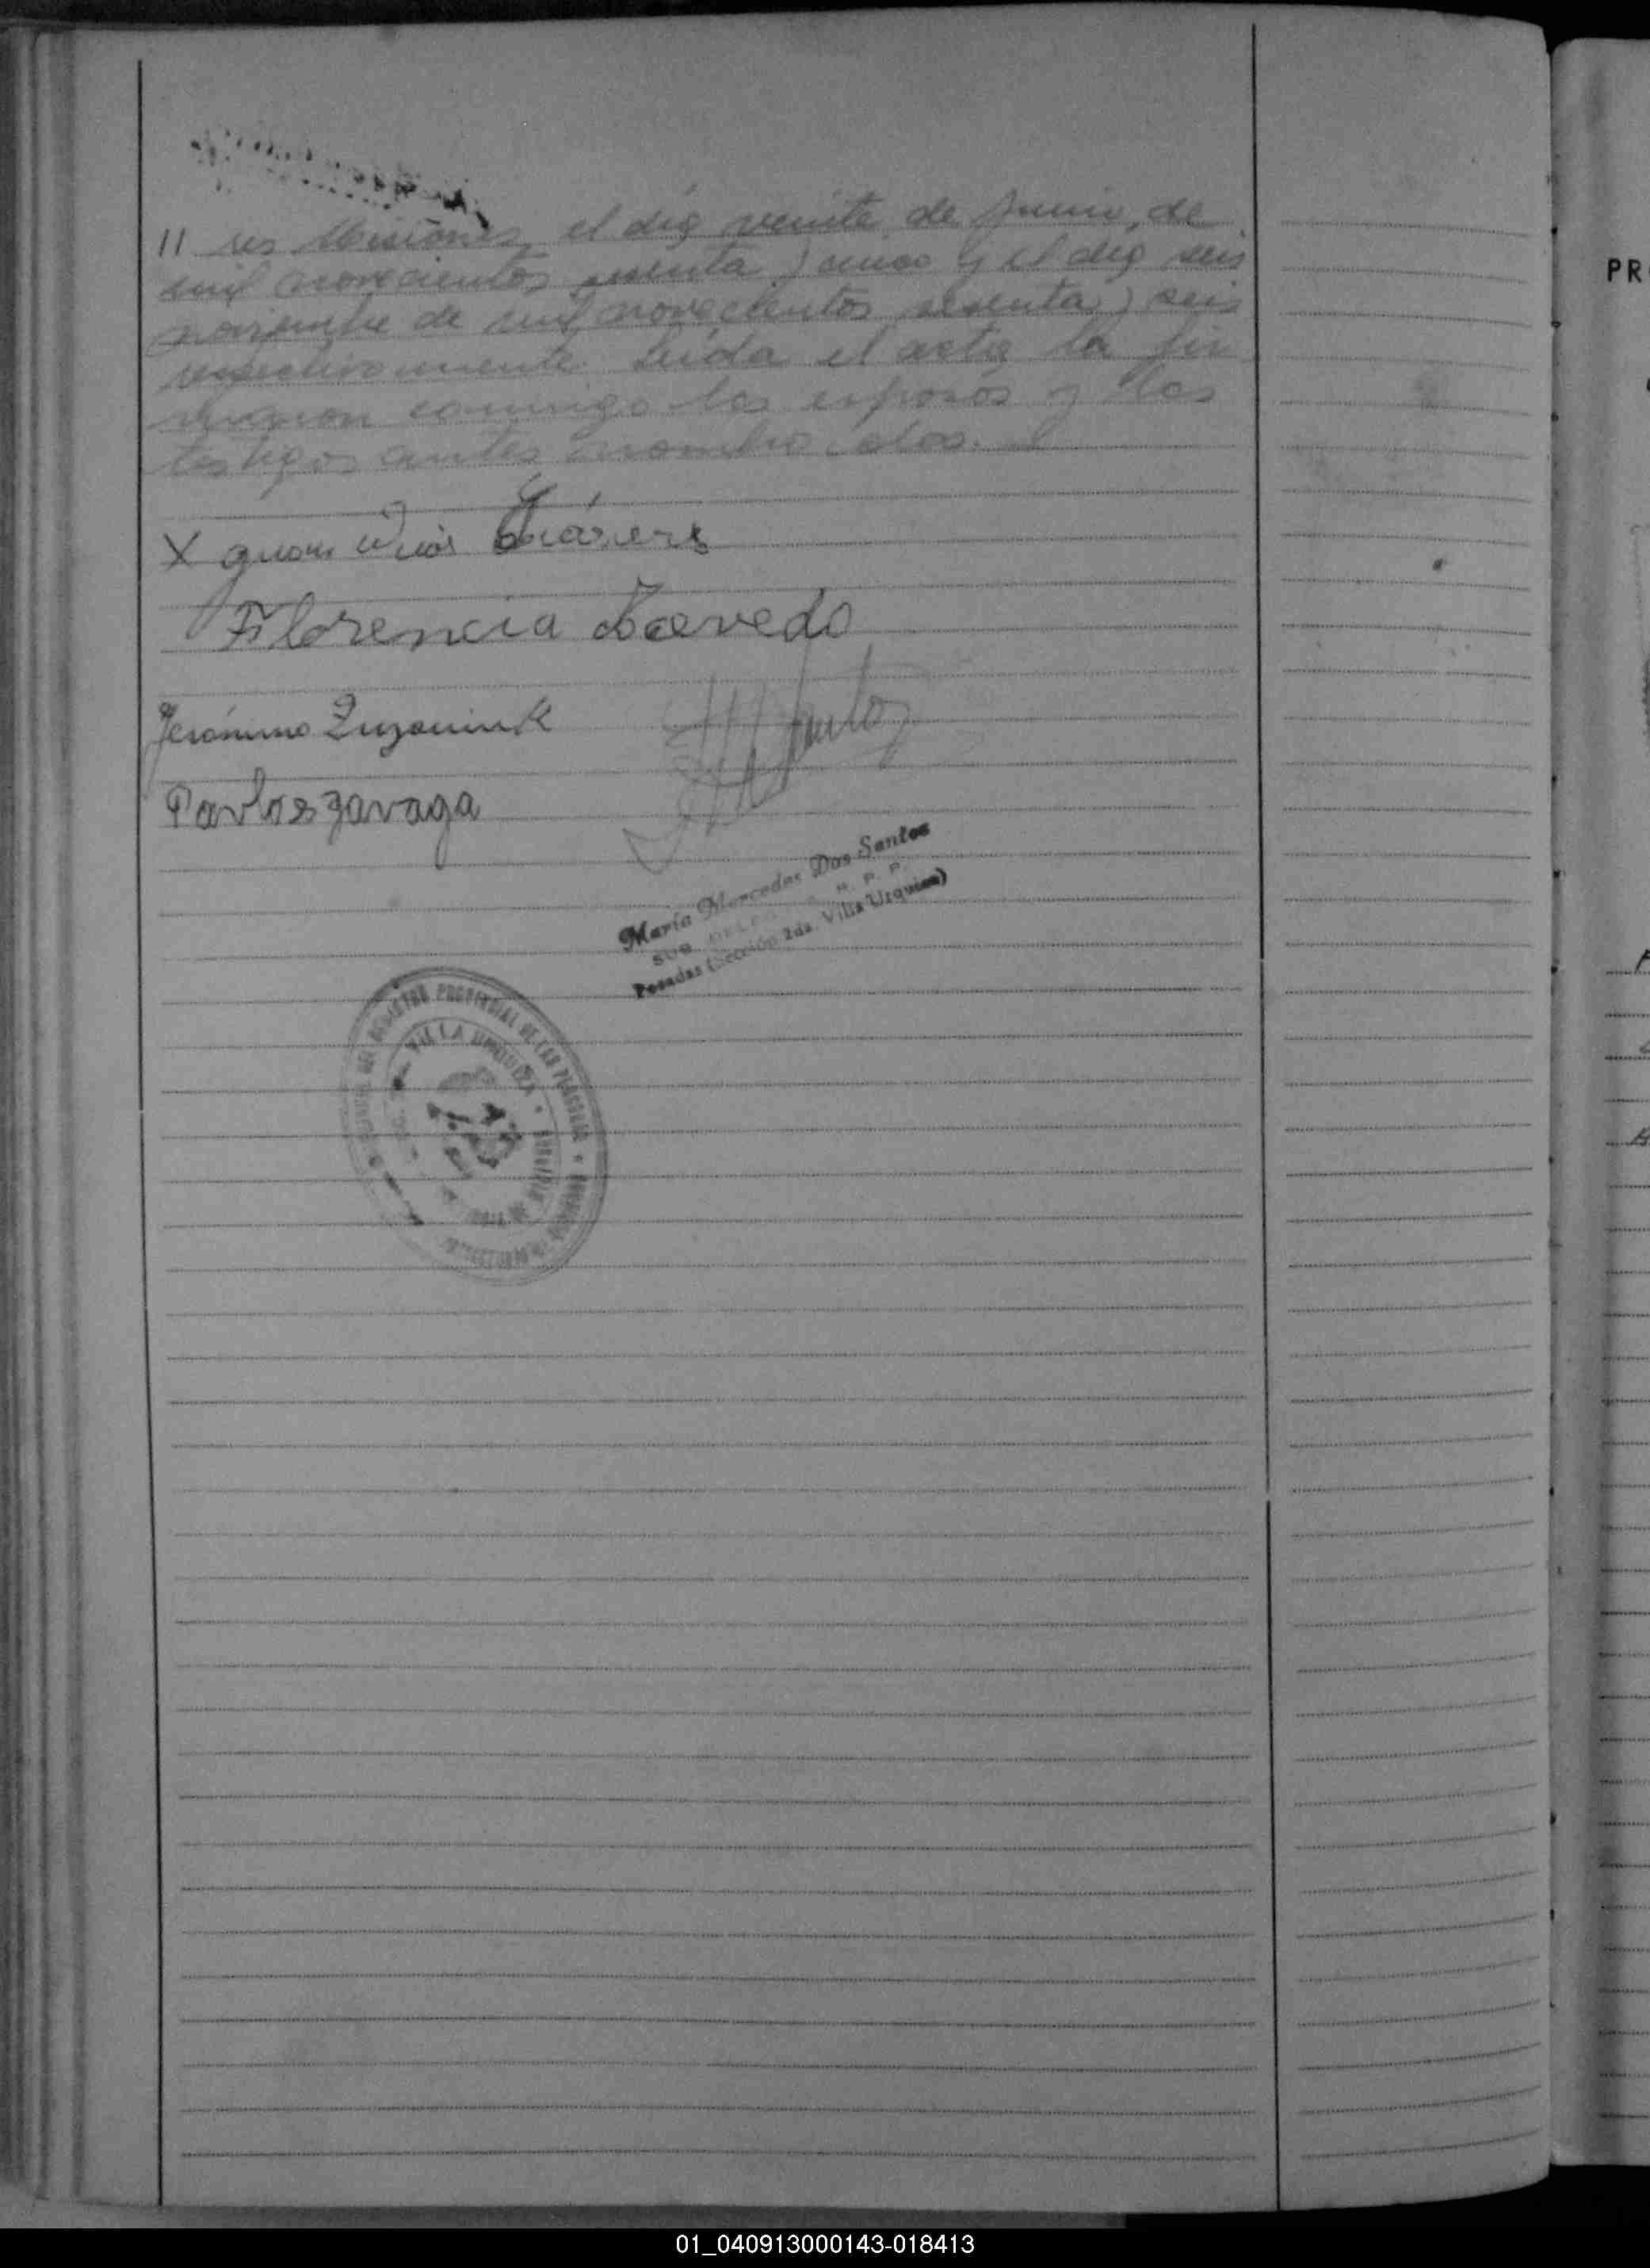 // res Misiones, el día veinte de Junio, de
mil novecientos sesenta y cinco y el día seis
noviembre de mil novecientos sesenta y seis
respectivamente. Leída el acta la fir
maron conmigo los esposos y los
testigos antes nombrados.
X Juan
Florencia Acevedo
Jerónimo
Santos
María Mercedes Dos Santos
SUB R. P. P.
Posadas (Sección 2da. Villa Urquiza)
DEL REGISTRO PROVINCIAL DE LAS PERSONAS
VILLA URQUIZA
PR
01_040913000143-018413